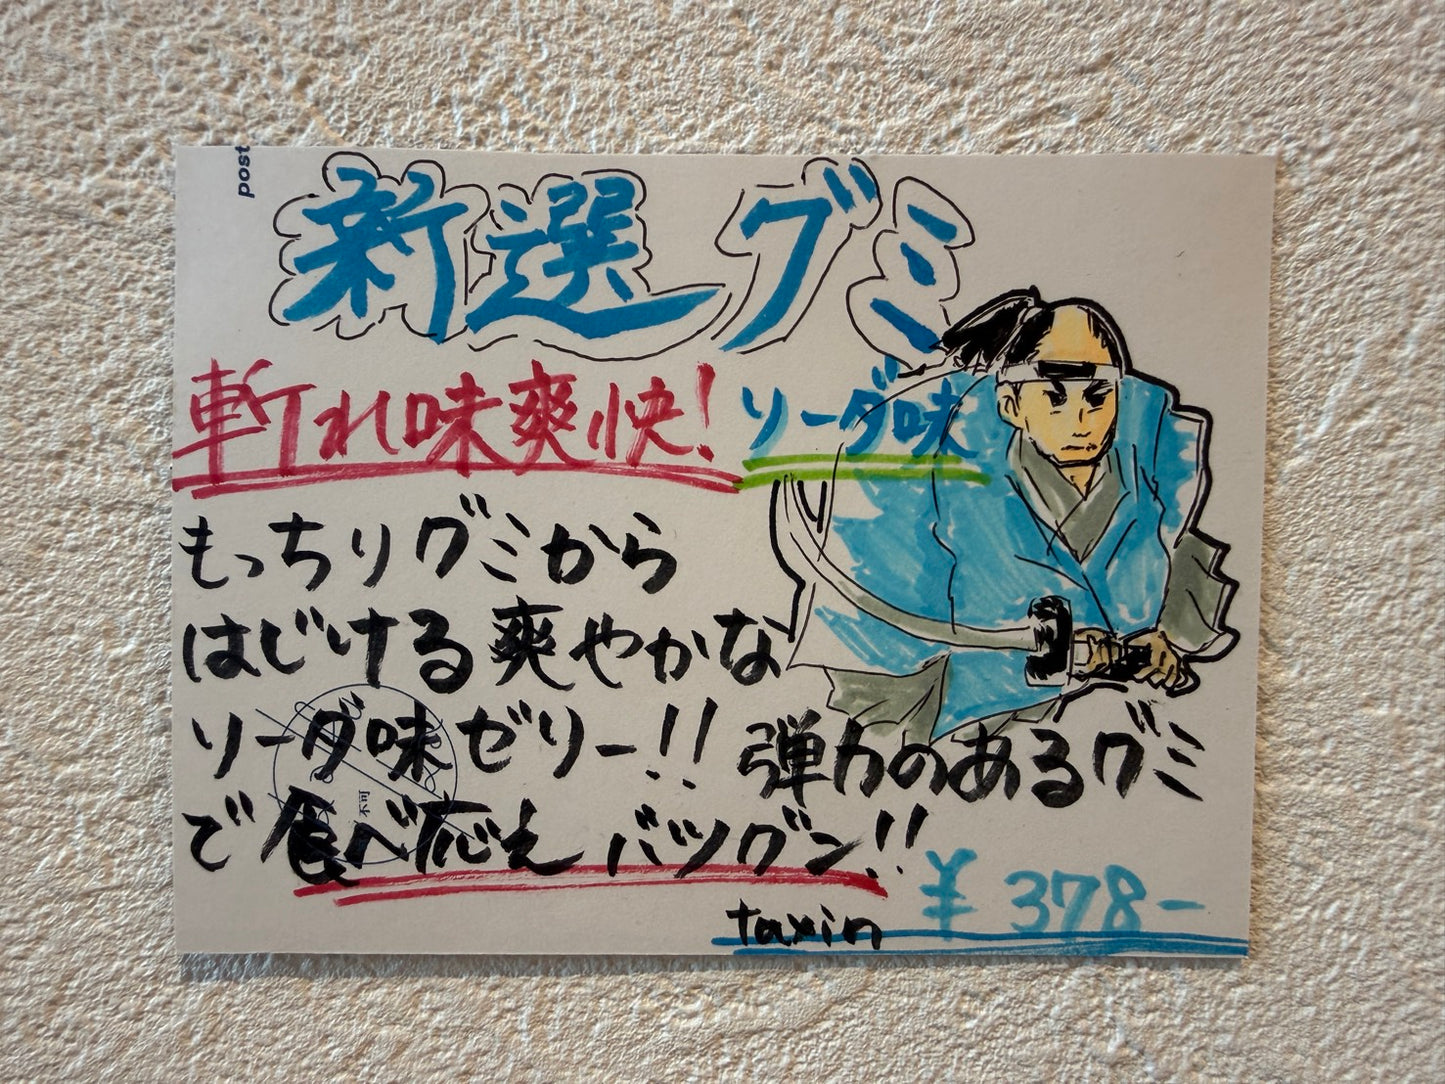 post
新選グミ
斬れ味爽快!
ソーダ味
もっちりグミから
はじける爽やかな
ソーダ味ゼリー!! 弾力のあるグミ
で食べ応えバツグン!!
不可
taxin ¥378-